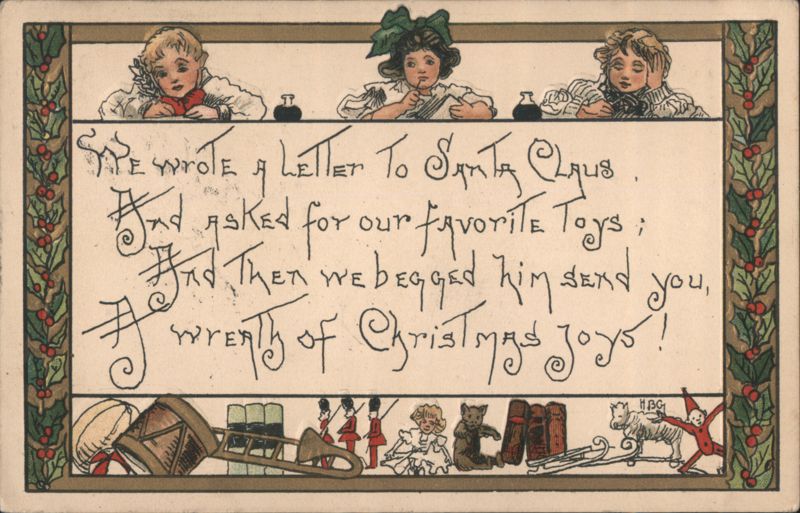 We wrote a Letter to Santa Claus,
And asked for our favorite Toys;
And Then we begged him send you,
A wreath of Christmas Joys!
HBG